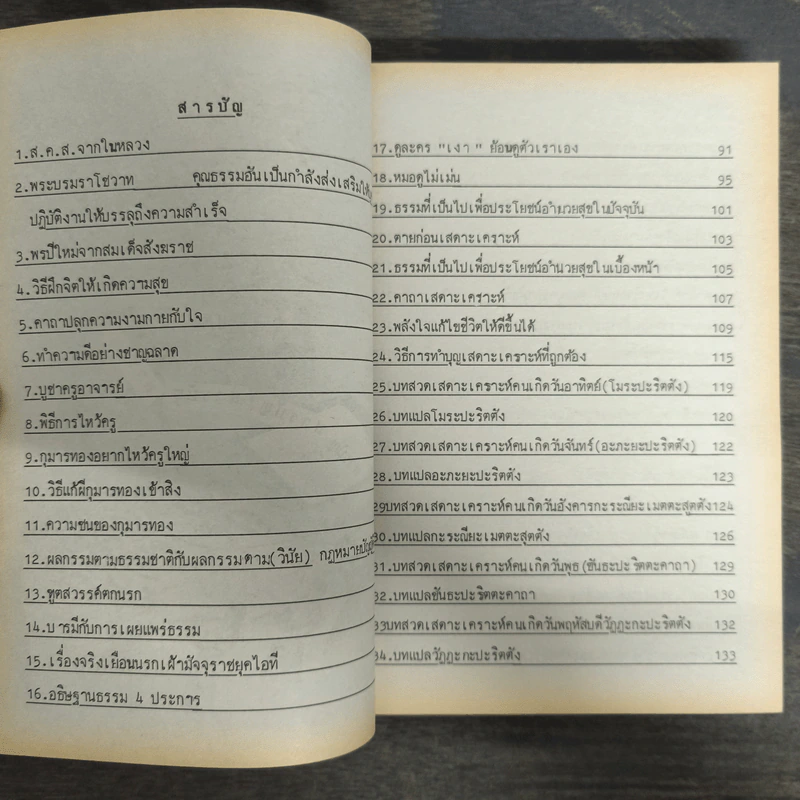 สารบัญ
1.ส.ค.ส.จากในหลวง
2.พระบรมราโชวาท คุณธรรมอันเป็นกำลังส่งเสริมให้
ปฏิบัติงานให้บรรลุถึงความสำเร็จ
3.พรปีใหม่จากสมเด็จสังฆราช
4.วิธีฝึกจิตให้เกิดความสุข
5.คาถาปลุกความงามกายกับใจ
6.ทำความดีอย่างชาญฉลาด
7.บูชาครูอาจารย์
8.พิธีการไหว้ครู
9.กุมารทองอยากไหว้ครูใหญ่
10.วิธีแก้ผีกุมารทองเข้าสิง
11.ความซนของกุมารทอง
12.ผลกรรมตามธรรมชาติกับผลกรรมตาม(วินัย) กฎหมาย
13.ทูตสวรรค์ตกนรก
14.บารมีกับการเผยแพร่ธรรม
15.เรื่องจริงเยือนนรกเฝ้ามัจจุราชยุคไอที
16.อธิษฐานธรรม 4 ประการ
17.ดูละคร "เงา" ย้อนดูตัวเราเอง 91
18.หมอดูไม่เม่น 95
19.ธรรมที่เป็นไปเพื่อประโยชน์อำนวยสุขในปัจจุบัน 101
20.ตายก่อนเสดาะเคราะห์ 103
21.ธรรมที่เป็นไปเพื่อประโยชน์อำนวยสุขในเบื้องหน้า 105
22.คาถาเสดาะเคราะห์ 107
23.พลังใจแก้ไขชีวิตให้ดีขึ้นได้ 109
24.วิธีการทำบุญเสดาะเคราะห์ที่ถูกต้อง 115
25.บทสวดเสดาะเคราะห์คนเกิดวันอาทิตย์(โมระปะริตตัง) 119
26.บทแปลโมระปะริตตัง 120
27.บทสวดเสดาะเคราะห์คนเกิดวันจันทร์(อะภะยะปะริตตัง) 122
28.บทแปลอะภะยะปะริตตัง 123
29บทสวดเสดาะเคราะห์คนเกิดวันอังคารกะระณียะเมตตะสูตตัง124
30.บทแปลกะระณียะเมตตะสูตตัง 126
31.บทสวดเสดาะเคราะห์คนเกิดวันพุธ(ขันธะปะริตตะคาถา) 129
32.บทแปลขันธะปะริตตะคาถา 130
33บทสวดเสดาะเคราะห์คนเกิดวันพฤหัสบดีวัฏฏะกะปะริตตัง 132
34.บทแปลวัฏฏะกะปะริตตัง 133